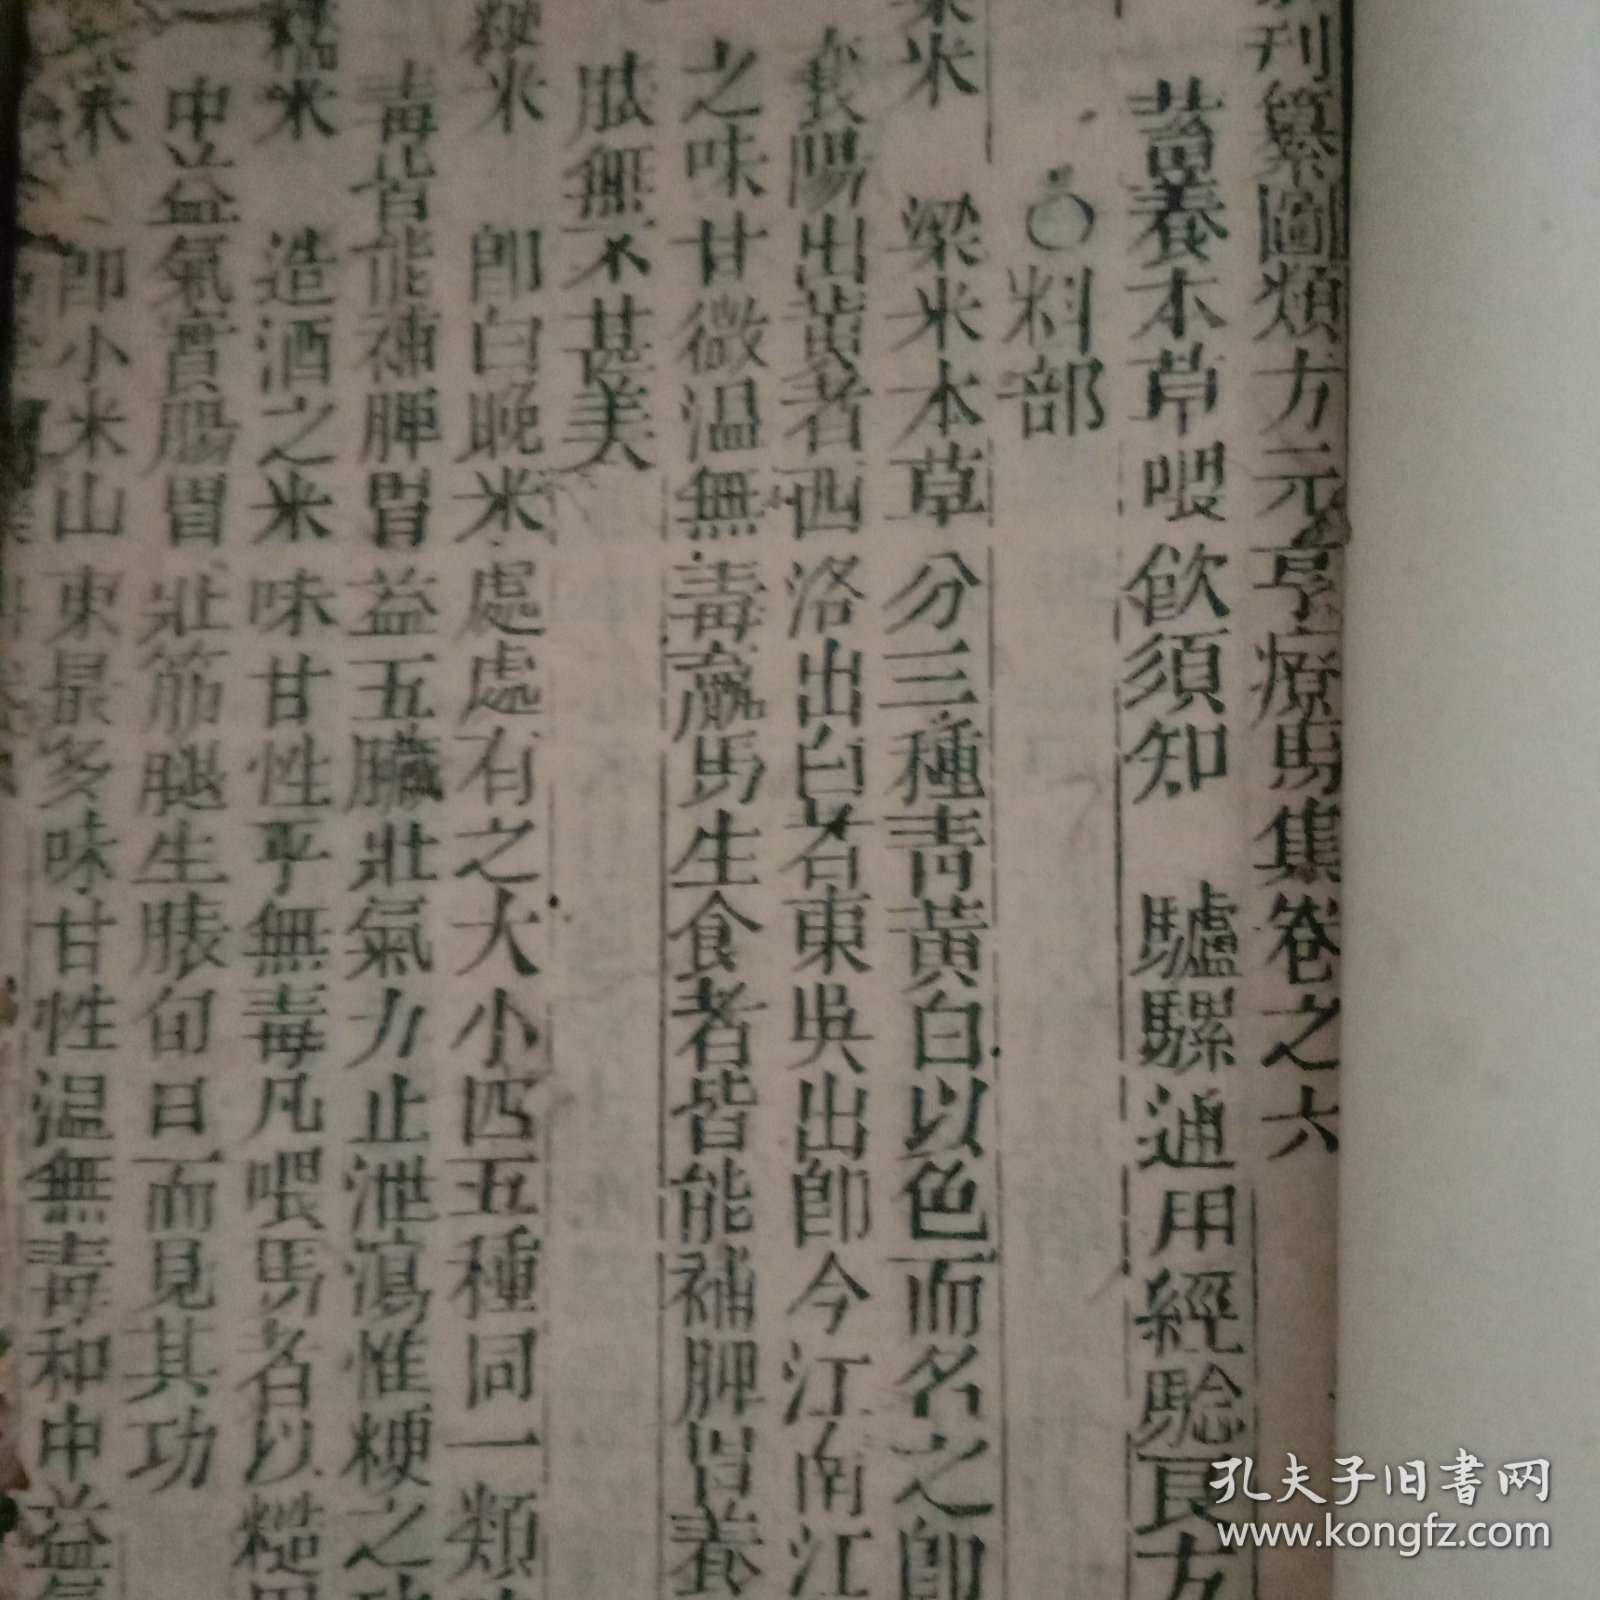 刊纂圖類方元亨療馬集卷之六
蓄養本草喂飲須知 驢騾通用經驗良方
料部
粱米 粱米本草分三種青黃白以色而名之卽
襄陽出黃者西洛出白者東吳出卽今江南江
之味甘微温無毒羸馬生食者皆能補脾胃養
眂無不甚美
粳米 卽白晚米處處有之大小四五種同一類
毒皆能補脾胃益五臟壯氣力止泄瀉惟粳之
糯米 造酒之米味甘性平無毒凡喂馬者以糙
中益氣實腸胃壯筋腿生脹旬日而見其功
米 卽小米山東最多味甘性温無毒和中益氣
孔夫子旧書网
www.kongfz.com